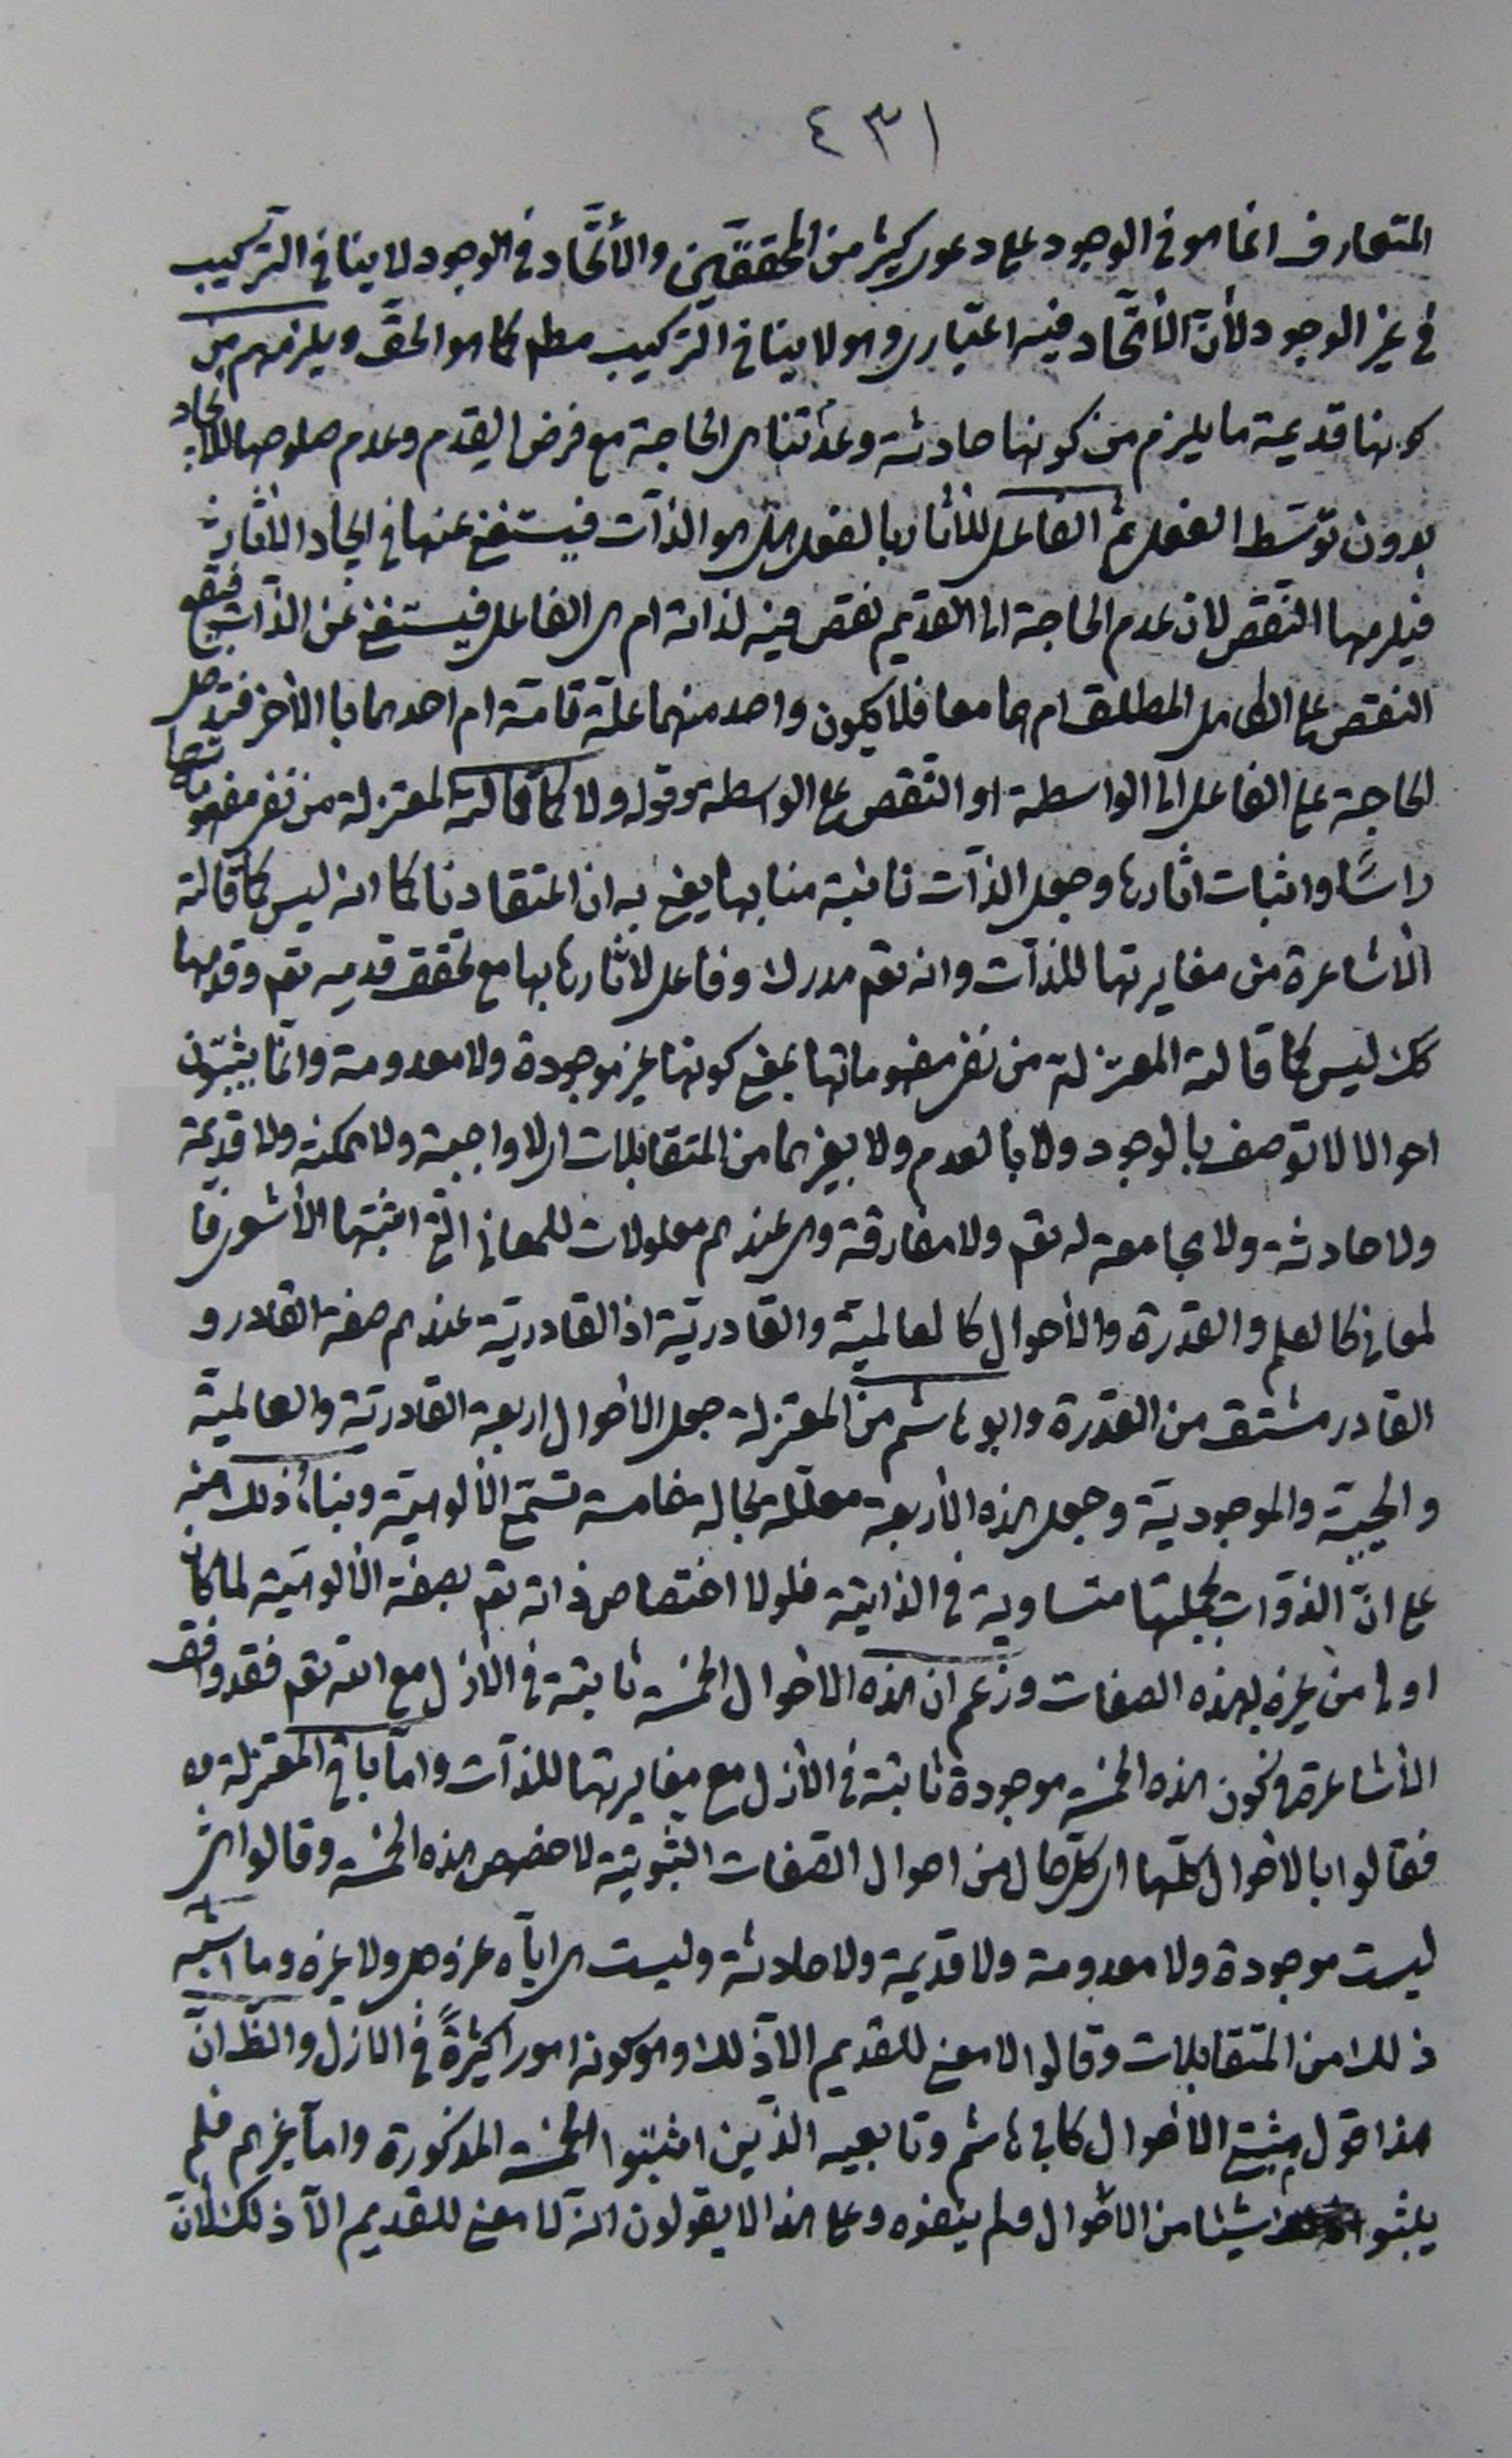 ٤٣١
المتعارف انما هو في الوجود على دعوى كثير من المحققين والأتحاد في الوجود لا ينافي التركيب
في غير الوجود لأن الأتحاد فيه اعتباري وهو لا ينافي التركيب مطلم كما هو الحق ويلزمهم من
كونها قديمة ما يلزم من كونها حادثة وعدم تناهى الحاجة مع فرض القدم وعدم صلوحها للايجاد
بدون توسط الفعل ثم الفاعل للأثار بالفعل هل هو الذات فيستغنى عنها في ايجاد الاثار
فيلزمها النقص لان عدم الحاجة الى القديم نقص فيه لذاته ام هي الفاعل فيستغنى عن الذات فيقع
النقص على الكامل المطلق ام هما معا فلا يكون واحد منهما علة تامة ام احدهما بالاخر فتدخل
الحاجة على الفاعل الى الواسطة او النقص على الواسطة وقوله ولا كما قالته المعتزلة من نفى مفهوماتها
راسًا واثبات اثارها وجعل الذات نائبة منابها يعنى به ان اعتقادنا كما انه ليس كما قالته
الأشاعرة من مغايرتها للذات وانه تعم مدرك وفاعل لاثارها بها مع تحقق قدمه تعم وقدمها
كك ليس كما قالته المعتزلة من نفى مفهوماتها بمعنى كونها غير موجودة ولا معدومة وانما يثبتون
احوالا لا توصف بالوجود ولا بالعدم ولا بغيرهما من المتقابلات اى لا واجبة ولا ممكنة ولا قديمة
ولا حادثة ولا مجامعة له تعم ولا مفارقة وهى عندهم معلولات للمعاني التي اثبتها الأشعرى فا
لمعانى كالعلم والقدرة والأحوال كالعالمية والقادرية اذ القادرية عندهم صفة القادر و
القادر مشتق من القدرة وابو هاشم من المعتزلة جعل الاحوال اربعة القادرية والعالمية
والحيية والموجودية وجعل هذه الأربعة معللة بحالة خامسة تسمى الألوهية وبناء ذلك منه
على ان الذوات بجملتها متساوية في الذاتية فلولا اختصاص ذاته تعم بصفة الألوهية لما كان
اولى من غيره بهذه الصفات وزعم ان هذه الاحوال الخمسة ثابتة في الازل مع الله تعم فقد وافق
الأشاعرة في كون هذه الخمسة موجودة ثابتة في الأزل مع مغايرتها للذات واما باقى المعتزلة
فقالوا بالأحوال كلها اى كل حال من احوال الصفات الثبوتية لا خصوص هذه الخمسة وقالوا هى
ليست موجودة ولا معدومة ولا قديمة ولا حادثة وليست هى اياه عز وجل ولا غيره وما اشبه
ذلك من المتقابلات وقالوا لا معنى للقديم الا ذلك وهو كونه امورا كثيرةً في الازل والظ ان
هذا قول مثبتى الأحوال كابى هاشم وتابعيه الذين اثبتوا الخمسة المذكورة واما غيرهم فلم
يثبتوا شيئا من الأحوال ولم ينفوه وعلى هذا لا يقولون انه لا معنى للقديم الا ذلك لأن